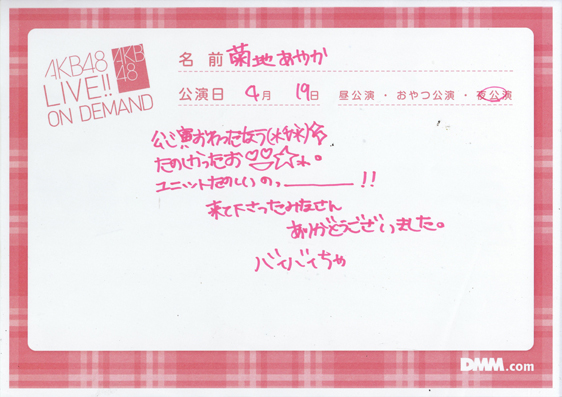 AKB48
LIVE!!
ON DEMAND
AKB
48
名 前 菊地あやか
公演日 4月 19日 昼公演・おやつ公演・夜公演
公演おわったなう(*´∀`*)☆
たのしかったお♡♡☆。
ユニットたのしいのっ————!!
来て下さったみなさん
ありがとうございました。
バイバイちゃ
DMM.com